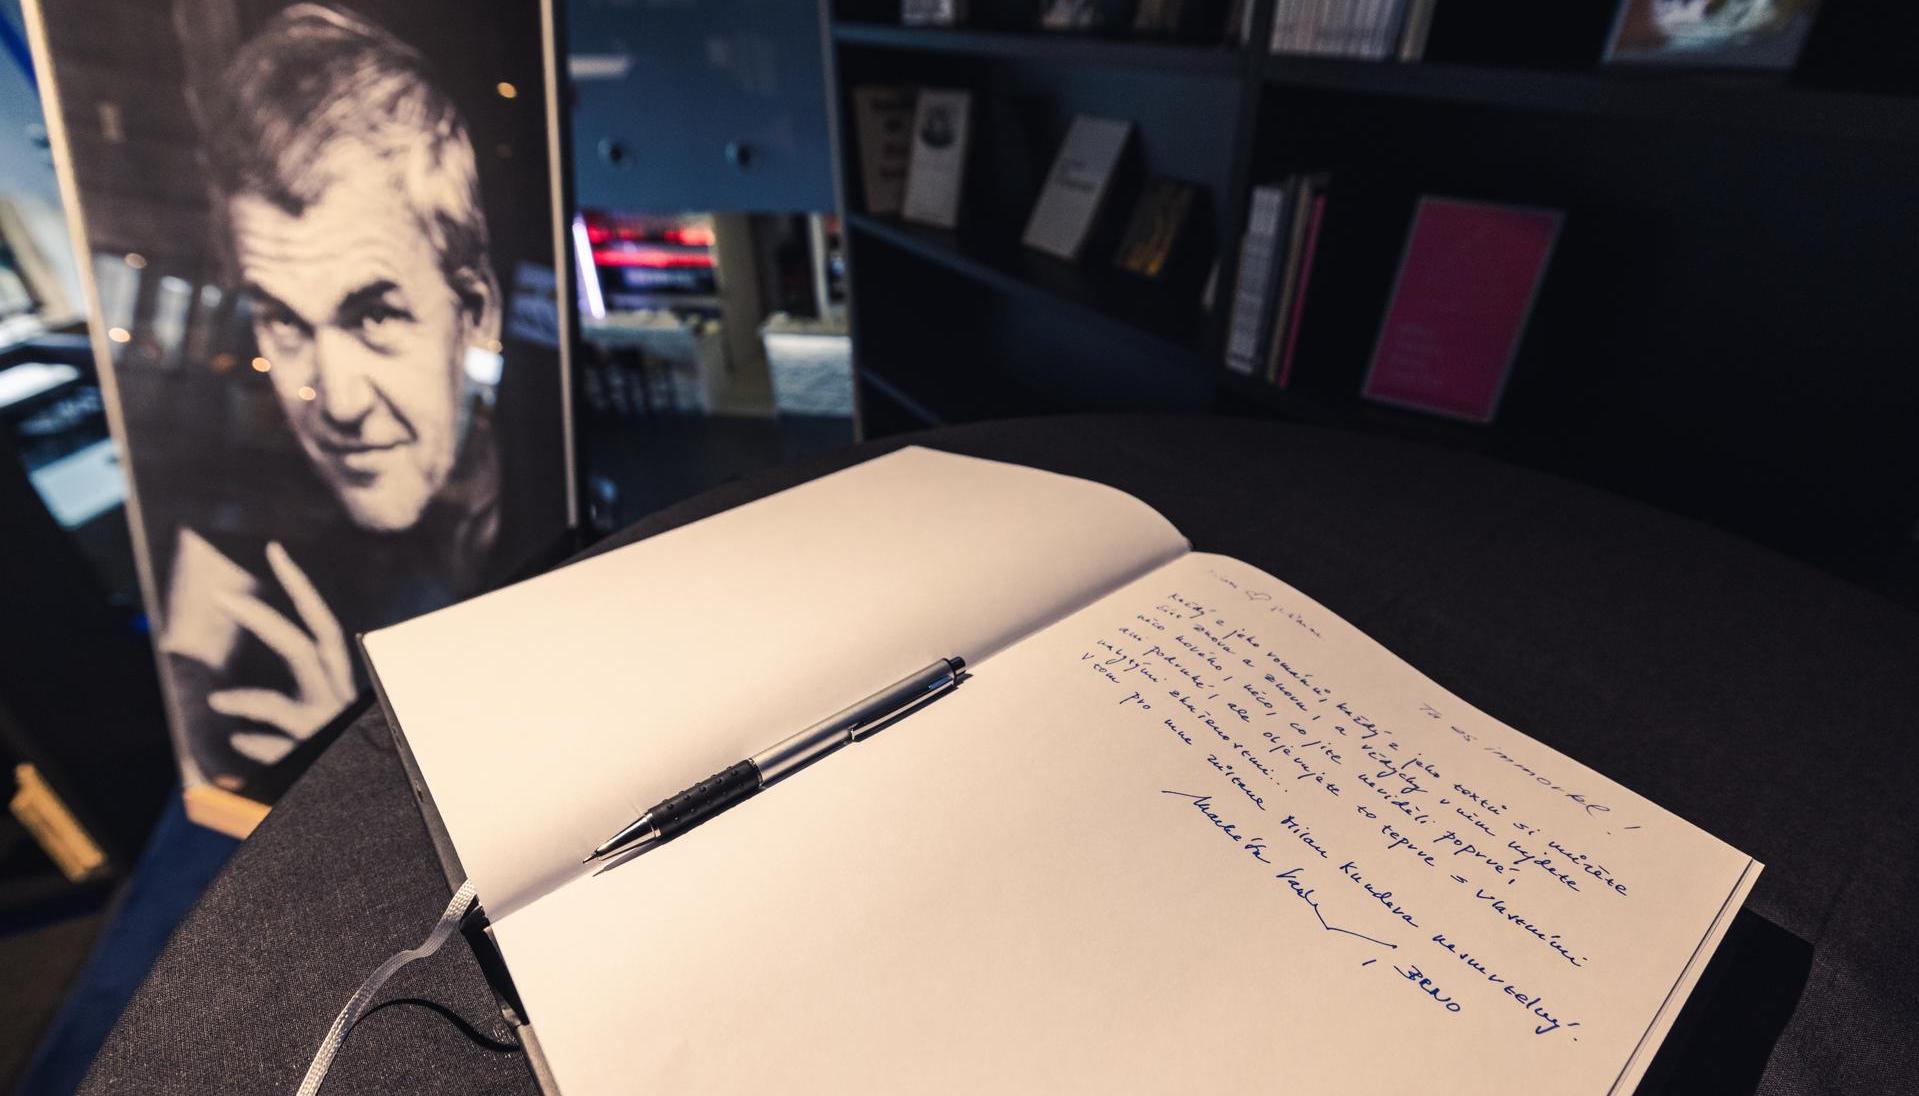 Tu es immortel!
Každý z jeho románů, každý z jeho textů si můžete
číst znova a znovu, a vždycky v něm najdete
něco nového, něco, co jste neviděli poprvé,
ani podruhé, ale objevujete to teprve s vlastními
nabytými zkušenostmi...
V tom pro mne zůstane Milan Kundera nesmrtelný.
Markéta
, BRNO